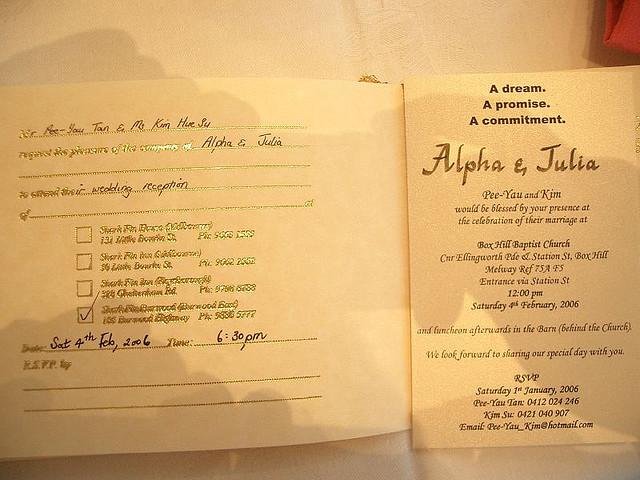 Mr Pee-Yau Tan & Ms Kim Hue Su
request the pleasure of the company of Alpha & Julia
to attend their wedding reception
of at
Shark Fin House (Melbourne)
131 Little Bourke St, Ph: 9663 1555
Shark Fin Inn (Melbourne)
50 Little Bourke St, Ph: 9662 2552
Shark Fin Inn (Keysborough)
Cheltenham Rd,
Shark Fin Burwood (Burwood East)
Burwood Highway Ph:
Date: Sat 4th Feb, 2006 Time: 6:30pm
R.S.V.P. by
A dream.
A promise.
A commitment.
Alpha & Julia
Pee-Yau and Kim
would be blessed by your presence at
the celebration of their marriage at
Box Hill Baptist Church
Cnr Ellingworth Pde & Station St, Box Hill
Melway Ref 73A F5
Entrance via Station St
12:00 pm
Saturday 4th February, 2006
and luncheon afterwards in the Barn (behind the Church).
We look forward to sharing our special day with you.
RSVP
Saturday 1st January, 2006
Pee-Yau Tan: 0412 024 246
Kim Su: 0421 040 907
Email: Pee-Yau_Kim@hotmail.com